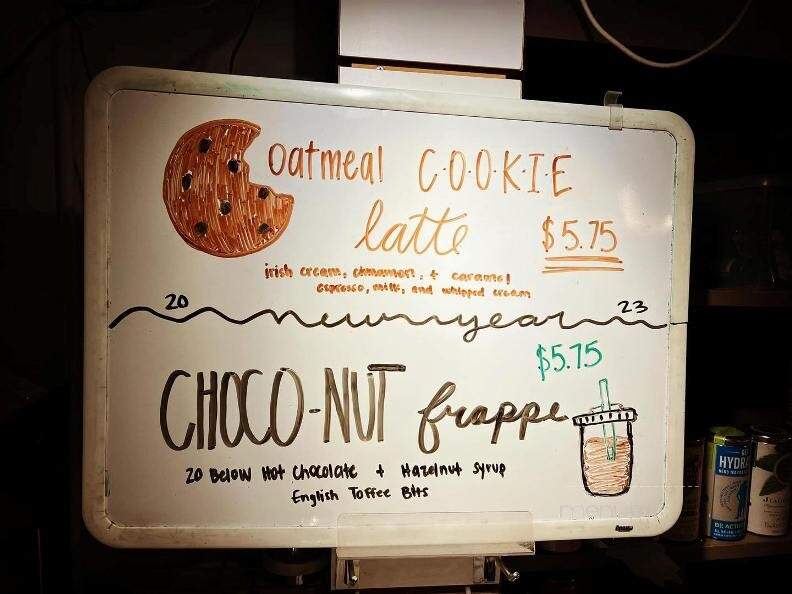 Oatmeal C·O·O·K·I·E
latte $5.75
irish cream, cinnamon, + caramel
espresso, milk, and whipped cream
20 new year 23
$5.75
CHOCO-NUT frappe
20 Below Hot Chocolate + Hazelnut Syrup
English Toffee Bits
HYDR
BE ACTI